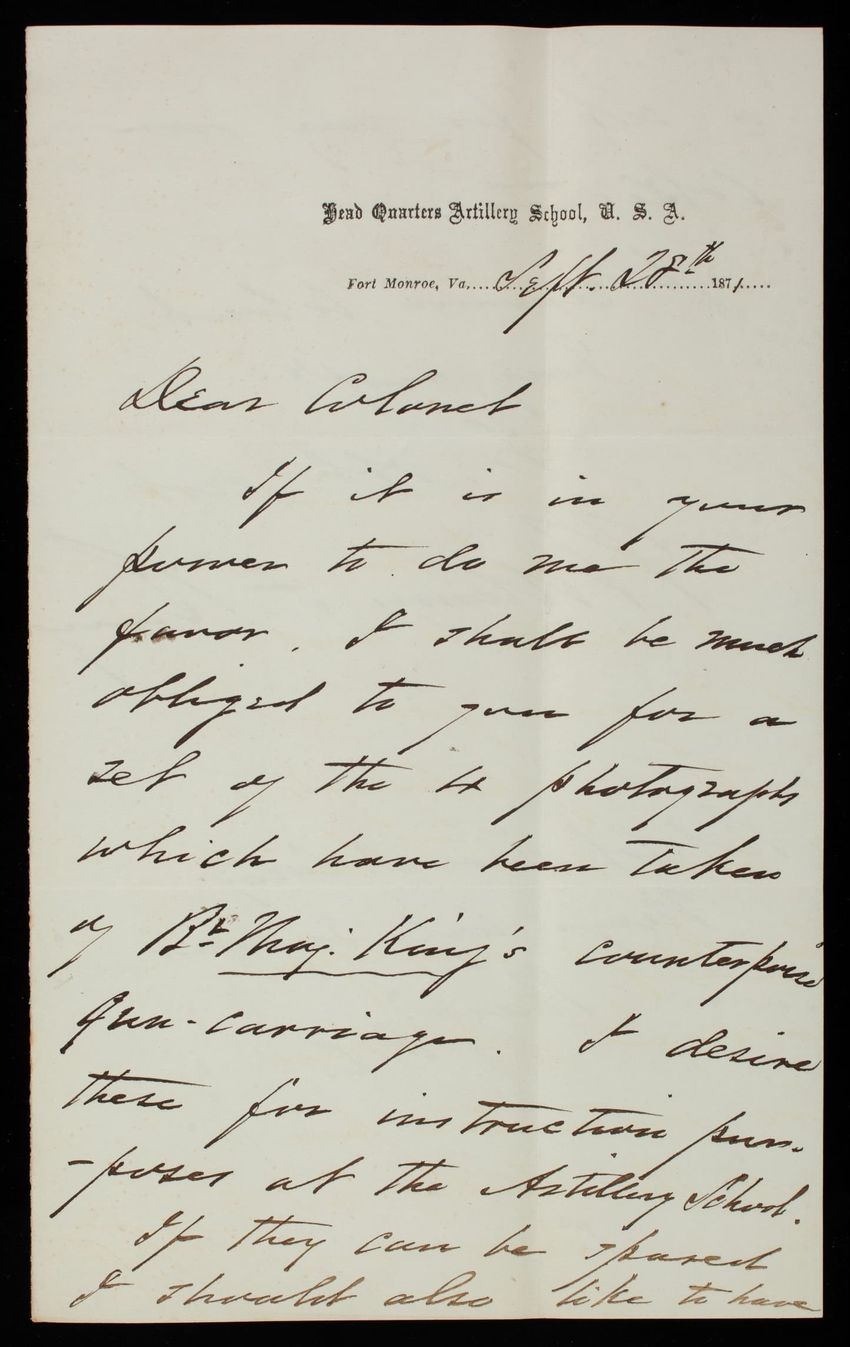 Head Quarters Artillery School, U. S. A.
Fort Monroe, Va.,....Sept. 28th 1871.....
Dear Colonel
If it is in your
power to do me the
favor, I shall be much
obliged to you for a
set of the 4 photographs
which have been taken
of Bt. Maj. King's counterpoise
gun-carriage. I desire
these for instruction pur-
-poses at the Artillery School.
If they can be spared
I should also like to have